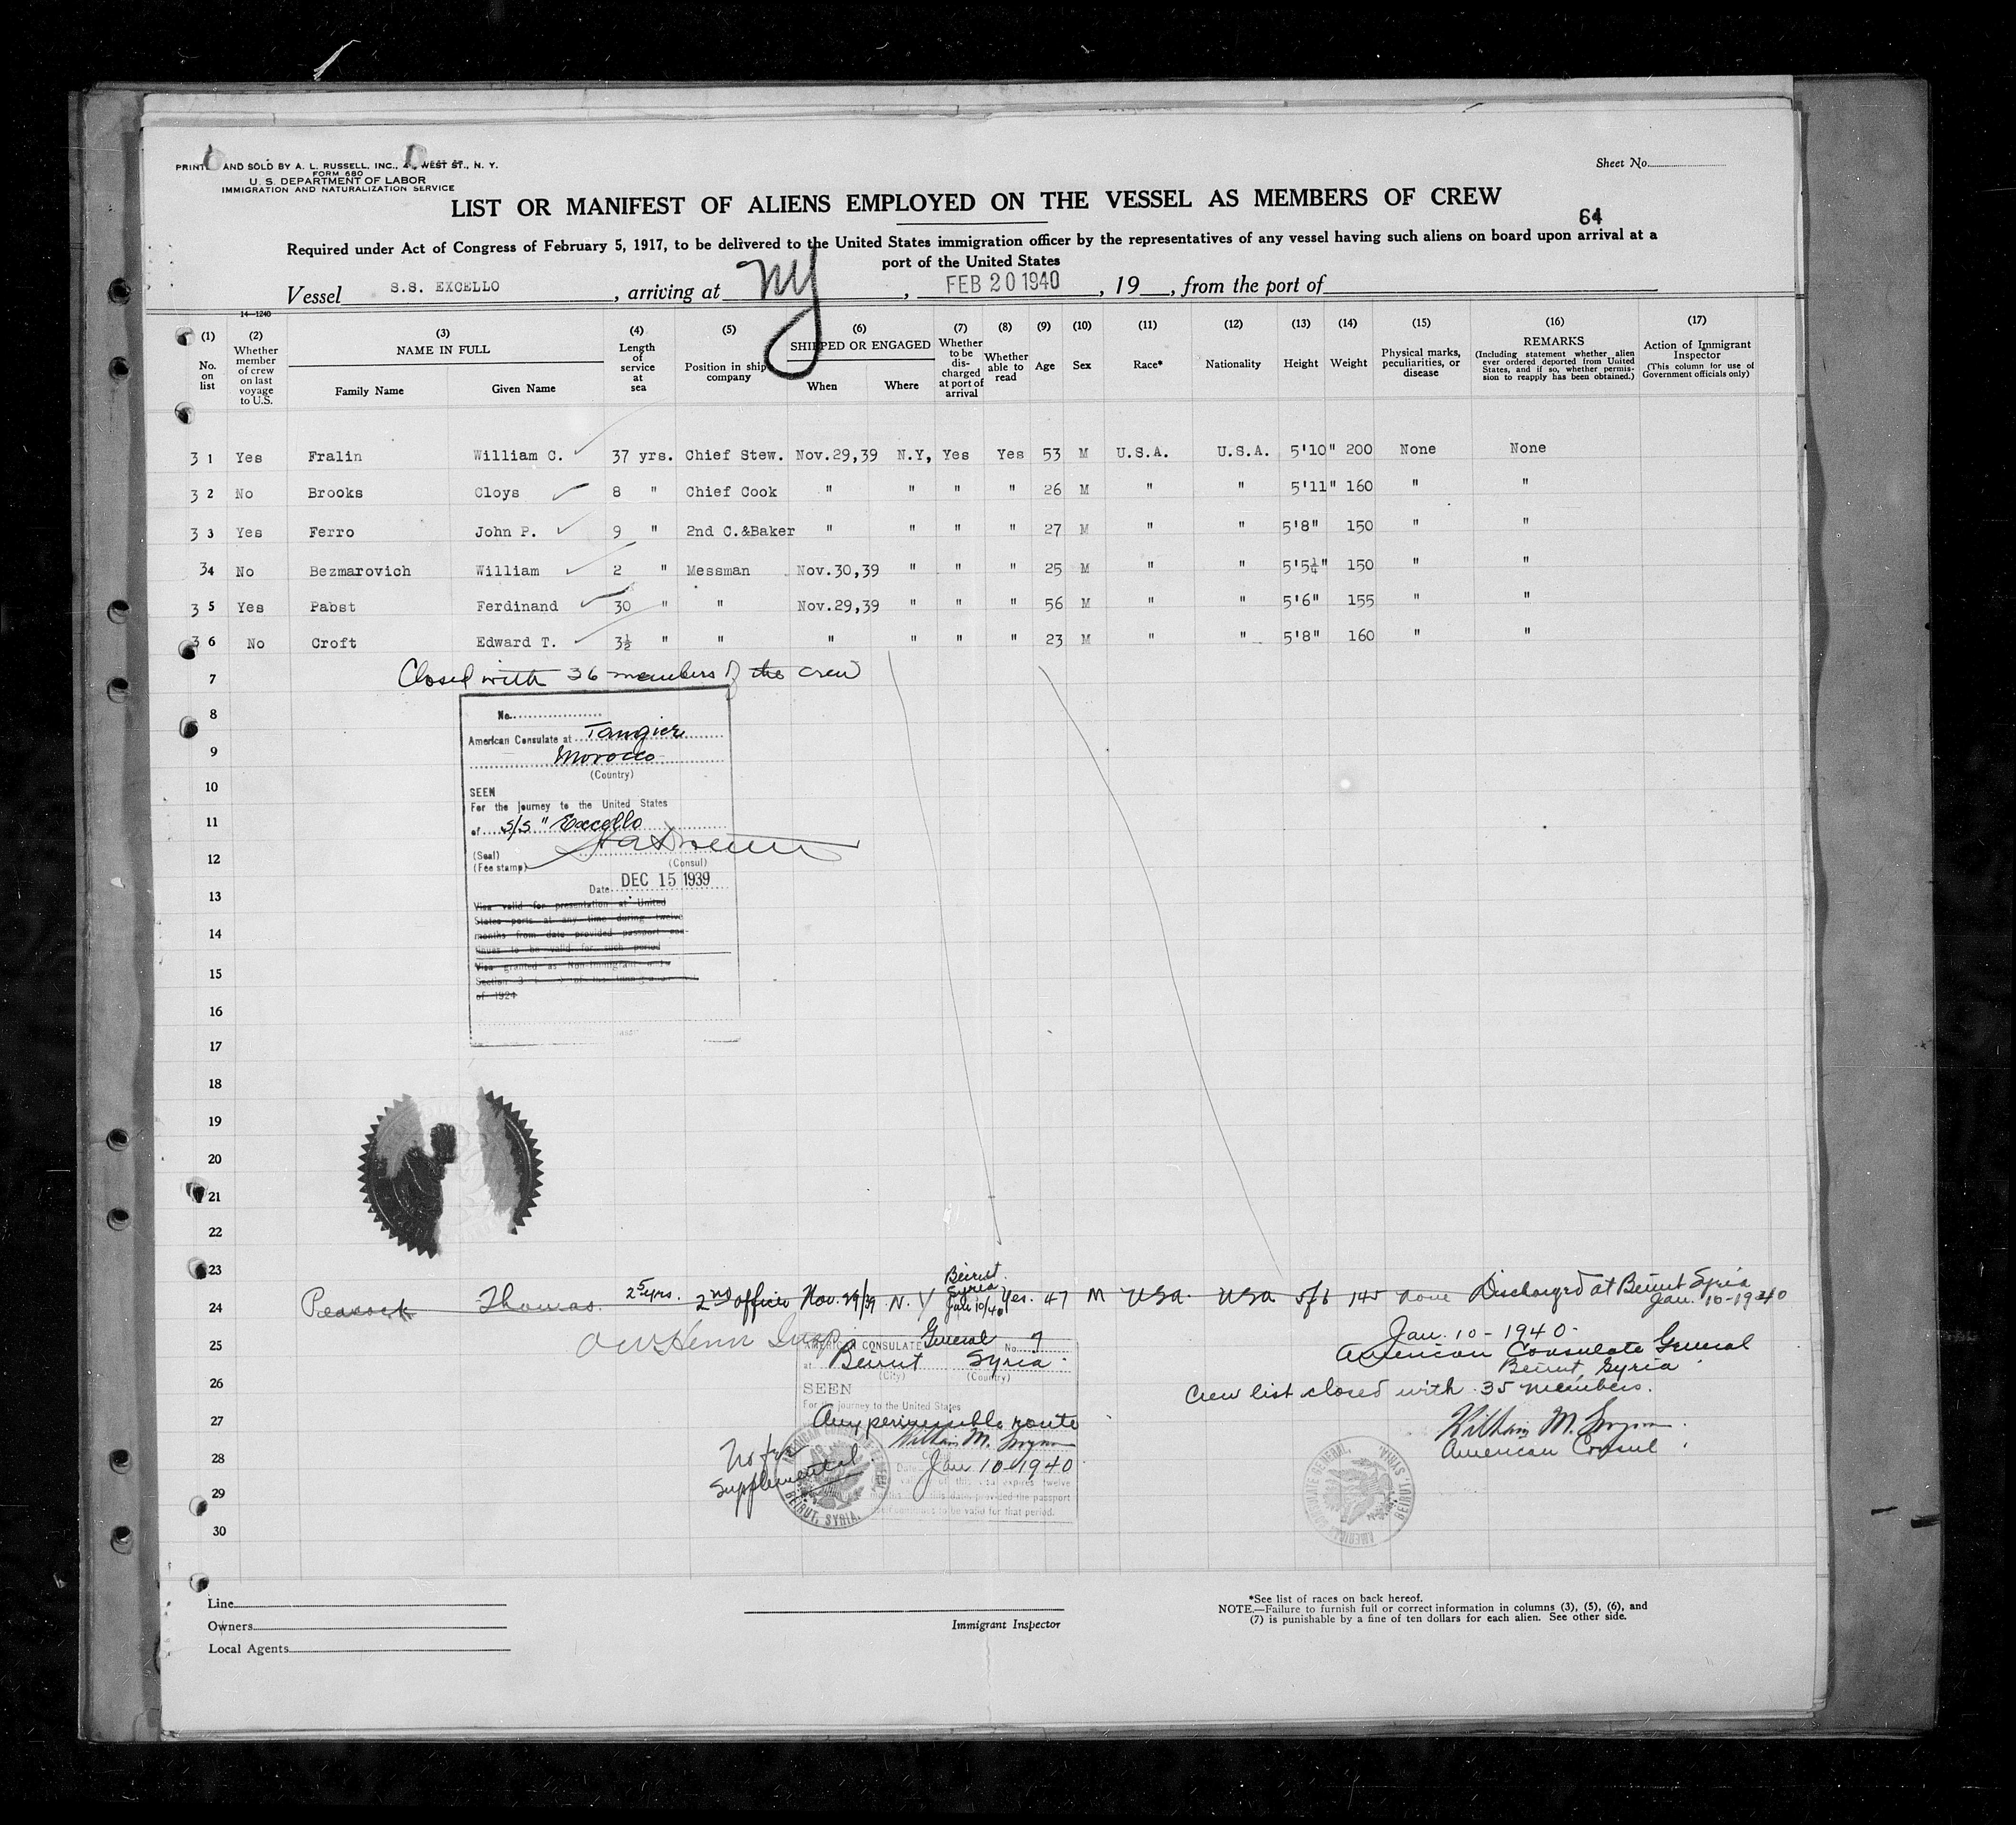 PRINT AND SOLD BY A. L. RUSSELL, INC., WEST ST., N. Y.
FORM 680
U. S. DEPARTMENT OF LABOR
IMMIGRATION AND NATURALIZATION SERVICE
Sheet No.
LIST OR MANIFEST OF ALIENS EMPLOYED ON THE VESSEL AS MEMBERS OF CREW
64
Required under Act of Congress of February 5, 1917, to be delivered to the United States immigration officer by the representatives of any vessel having such aliens on board upon arrival at a
port of the United States
Vessel S.S. EXCELLO, arriving at NY, FEB 20 1940, 19 , from the port of
14—1240
(1) (2) (3) (4) (5) (6) (7) (8) (9) (10) (11) (12) (13) (14) (15) (16) (17)
No. on list
Whether member of crew on last voyage to U.S.
NAME IN FULL
Family Name Given Name
Length of service at sea
Position in ship company
SHIPPED OR ENGAGED
When Where
Whether to be discharged at port of arrival
Whether able to read
Age
Sex
Race*
Nationality
Height
Weight
Physical marks, peculiarities, or disease
REMARKS
(Including statement whether alien ever ordered deported from United States, and if so, whether permission to reapply has been obtained.)
Action of Immigrant Inspector
(This column for use of Government officials only)
3 1 Yes Fralin William C. 37 yrs. Chief Stew. Nov.29,39 N.Y, Yes Yes 53 M U.S.A. U.S.A. 5'10" 200 None None
3 2 No Brooks Cloys 8 " Chief Cook " " " " 26 M " " 5'11" 160 " "
3 3 Yes Ferro John P. 9 " 2nd C.&Baker " " " " 27 M " " 5'8" 150 " "
34 No Bezmarovich William 2 " Messman Nov.30,39 " " " 25 M " " 5'5¼" 150 " "
3 5 Yes Pabst Ferdinand 30 " " Nov.29,39 " " " 56 M " " 5'6" 155 " "
3 6 No Croft Edward T. 3½ " " " " " " 23 M " " 5'8" 160 " "
7 Closed with 36 members of the crew
8
No.
American Consulate at Tangier
9
Morocco
(Country)
10
SEEN
For the journey to the United States
11
of S/S "Excello
12
(Seal)
(Fee stamp)
(Consul)
Date DEC 15 1939
13
Visa valid for presentation at United
States ports at any time during twelve
14
months from date provided passport con-
tinues to be valid for such period
15
Visa granted as Non-Immigrant
Section 3 of
of 1924
16
17
18
19
20
21
22
23
24 Peacock Thomas. 25 yrs. 2nd officer Nov. 29/39 N. Y Beirut Syria Jan 10/40 Yes. 47 M USA. USA 5/6 145 none Discharged at Beirut Syria
Jan. 10-1940
Jan. 10-1940.
25
AMERICAN CONSULATE General No. 7
at Beirut Syria.
(City) (Country)
American Consulate General
Beirut, Syria
26
SEEN
Crew list closed with 35 members.
For the journey to the United States
27
Any permissible route
William M.
William M.
American Consul
28
No fee
Supplemental
Date Jan 10-1940
expires twelve
provided the passport
29
continues to be valid for that period.
BEIRUT, SYRIA.
AMERICAN CONSULATE GENERAL, BEIRUT, SYRIA
30
Line
Owners
Local Agents
Immigrant Inspector
*See list of races on back hereof.
NOTE.—Failure to furnish full or correct information in columns (3), (5), (6), and
(7) is punishable by a fine of ten dollars for each alien. See other side.